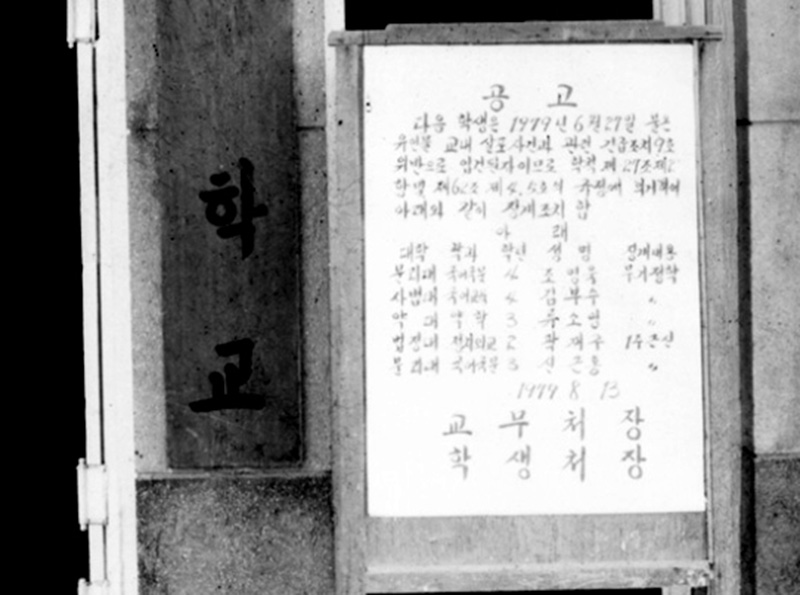 학교
공고
다음 학생은 1979년 6월 27일 불온
유인물 교내 살포사건과 관련 긴급조치 9호
위반으로 입건된 자이므로 학칙 제27조 제2
학생 제62조 제4, 5호의 규정에 의거하여
아래와 같이 징계조치 함
아 래
대학 학과 학년 성명 징계내용
문리대 국어국문 4 조영욱 무기정학
사범대 국어교육 4 김부수 〃
약대 약학 3 류소영 〃
법정대 정치외교 2 곽재우 1주근신
문리대 국어국문 3 신근홍 〃
1979 8 13
교무처장
학생처장